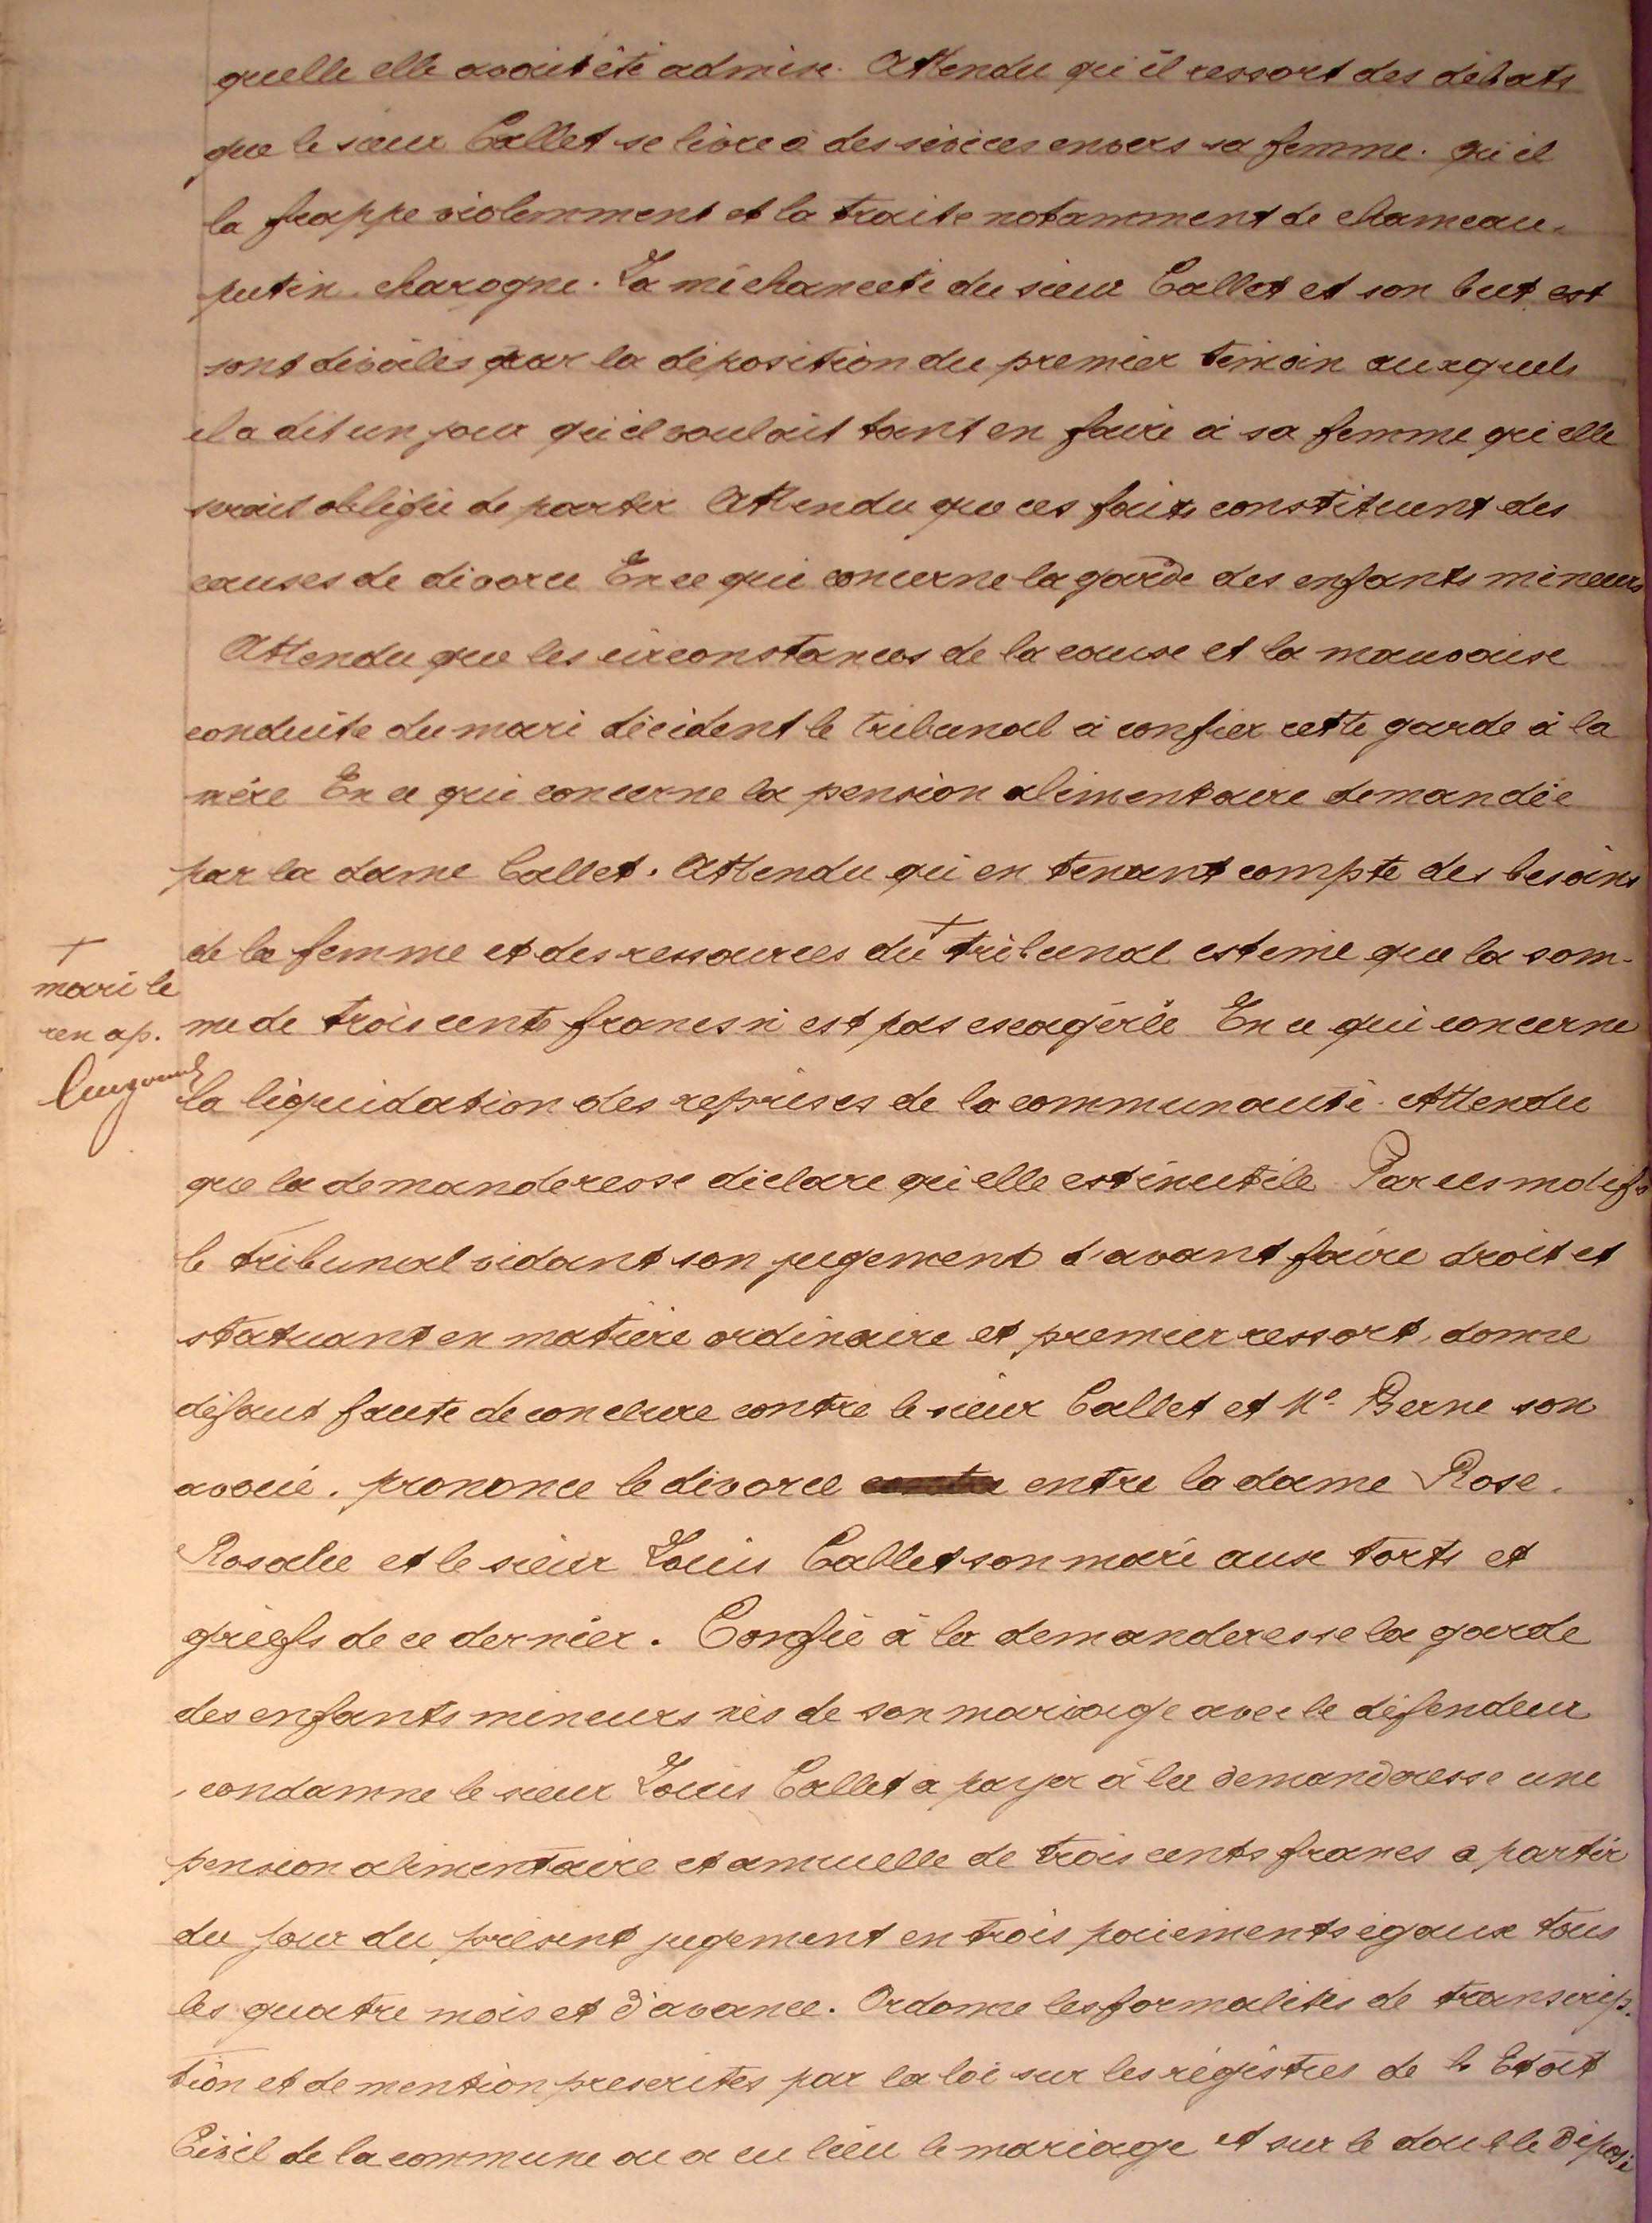 quelle elle avait été admise. Attendu qu'il ressort des débats
que le sieur Callet se livre à des sévices envers sa femme. qu'il
la frappe violemment et la traite notamment de chameau,
putin, charogne. La méchanceté du sieur Callet et son but est
sont dévoilés par la déposition du premier témoin auxquels
il a dit un jour qu'il voulait tant en faire à sa femme qu'elle
serait obligée de partir Attendu que ces faits constituent des
causes de divorce En ce qui concerne la garde des enfants mineurs
Attendu que les circonstances de la cause et la mauvaise
conduite du mari décident le tribunal à confier cette garde à la
mère En ce qui concerne la pension alimentaire demandée
par la dame Callet. Attendu qu'en tenant compte des besoins
de la femme et des ressources du + tribunal estime que la som-
+
mari le
ren ap.
me de trois cents francs n'est pas exagérée En ce qui concerne
la liquidation des reprises de la communauté. Attendu
que la demanderesse déclare qu'elle est inutile Par ces motifs
le tribunal vidant son jugement d'avant faire droit et
statuant en matière ordinaire et premier ressort, donne
défaut faute de conclure contre le sieur Callet et Me Berne son
avoué. prononce le divorce entre la dame Rose.
Rosalie et le sieur Louis Callet son mari aux torts et
griefs de ce dernier. Confie à la demanderesse la garde
des enfants mineurs nés de son mariage avec le défendeur
, condamne le sieur Louis Callet à payer à la demanderesse une
pension alimentaire et annuelle de trois cents francs a partir
du jour du présent jugement en trois paiements égaux tous
les quatre mois et d'avance. Ordonne les formalités de transcrip-
tion et de mention prescrites par la loi sur les régistres de l'Etat
Civil de la commune ou a eu lieu le mariage et sur le double déposé